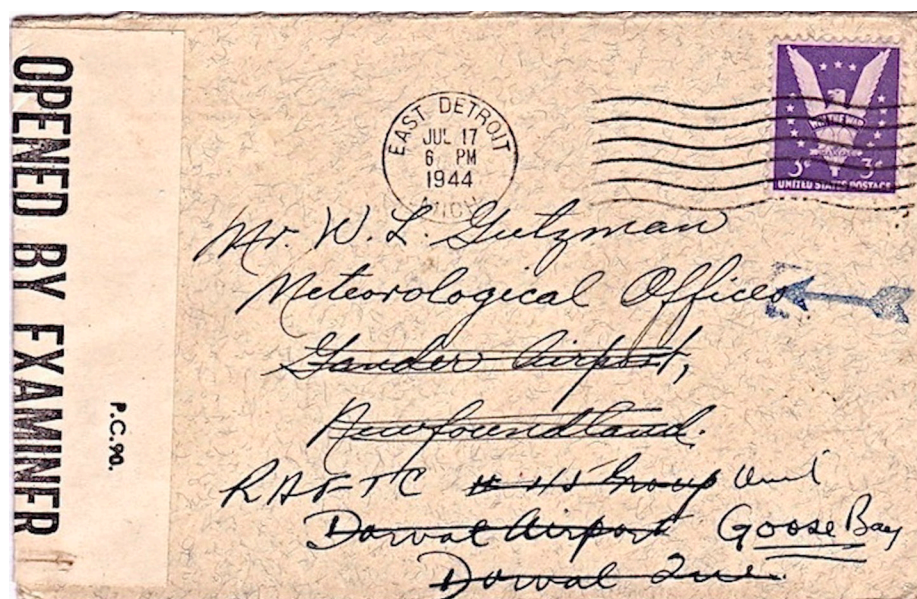 OPENED BY EXAMINER
P.C. 90.
EAST DETROIT
JUL 17
6 PM
1944
MICH.
WIN THE WAR
3¢ 3¢
UNITED STATES POSTAGE
Mr. W. L. Gutzman
Meteorological Office
Gander Airport,
Newfoundland.
RAFTC # 45 Group Unit
Dorval Airport Goose Bay
Dorval Que.